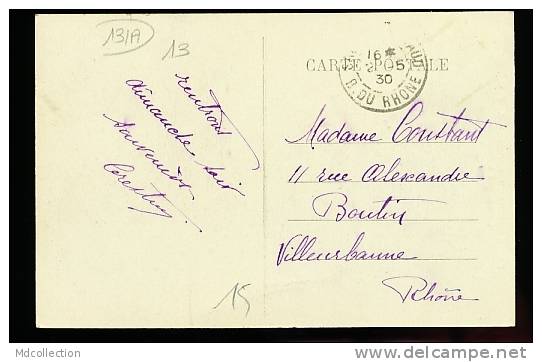 131A
13
rentrons
dimanche soir
souvenirs
CARTE POSTALE
16 *
2 - 5
30
B. DU RHONE
Madame Constant
11 rue Alexandre
Boutin
Villeurbanne
Rhône
15
Mdcollection
delcampe.net